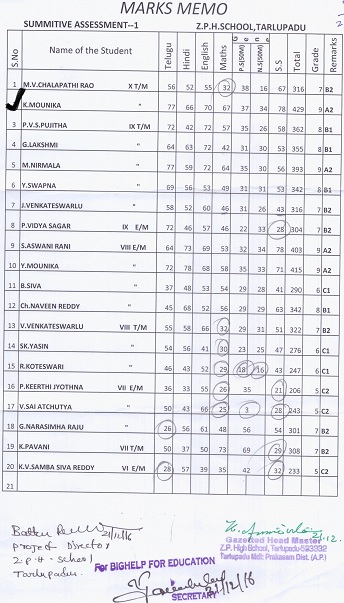 MARKS MEMO
SUMMITIVE ASSESSMENT--1 Z.P.H.SCHOOL,TARLUPADU
S.No Name of the Student Telugu Hindi English Maths P.S(50M) N.S(50M) S.S Total Grade Remarks
Gene
1 M.V.CHALAPATHI RAO X T/M 56 52 55 32 38 16 67 316 7 B2
K.MOUNIKA " 77 66 70 67 37 34 78 429 9 A2
3 P.V.S.PUJITHA IX T/M 72 42 72 57 35 26 58 362 8 B1
4 G.LAKSHMI " 64 63 72 42 31 30 53 355 8 B1
5 M.NIRMALA " 77 59 72 64 35 30 56 393 9 A2
6 Y.SWAPNA " 69 56 53 49 31 31 53 342 8 B1
7 J.VENKATESWARLU " 58 52 60 46 31 26 43 316 7 B2
8 P.VIDYA SAGAR IX E/M 72 46 57 46 22 33 28 304 7 B2
9 S.ASWANI RANI VIII E/M 64 73 69 53 32 34 78 403 9 A2
10 Y.MOUNIKA " 72 78 68 58 35 33 71 415 9 A2
11 B.SIVA " 37 48 53 54 29 28 41 290 6 C1
12 Ch.NAVEEN REDDY " 45 68 52 56 29 29 63 342 8 B1
13 V.VENKATESWARLU VIII T/M 55 58 66 32 29 31 51 322 7 B2
14 SK.YASIN " 54 56 41 30 23 25 47 276 6 C1
15 R.KOTESWARI " 46 43 52 29 18 16 43 247 6 C1
16 P.KEERTHI JYOTHNA VII E/M 36 33 55 26 35 21 206 5 C2
17 V.SAI ATCHUTYA " 50 43 66 25 3 28 243 5 C2
18 G.NARASIMHA RAJU " 26 56 61 48 56 54 301 7 B2
19 K.PAVANI VII T/M 50 37 50 73 69 29 308 7 B2
20 K.V.SAMBA SIVA REDDY VI E/M 28 57 39 35 42 32 233 5 C2
21
21/12/16
project Director
Z.P.H - School
Tarlupadu.
For BIGHELP FOR EDUCATION
21/12/16
SECRETARY
21.12.
Gazetted Head Master
Z.P. High School, Tarlupadu-523332
Tarlupadu Mdl: Prakasam Dist. (A.P.)